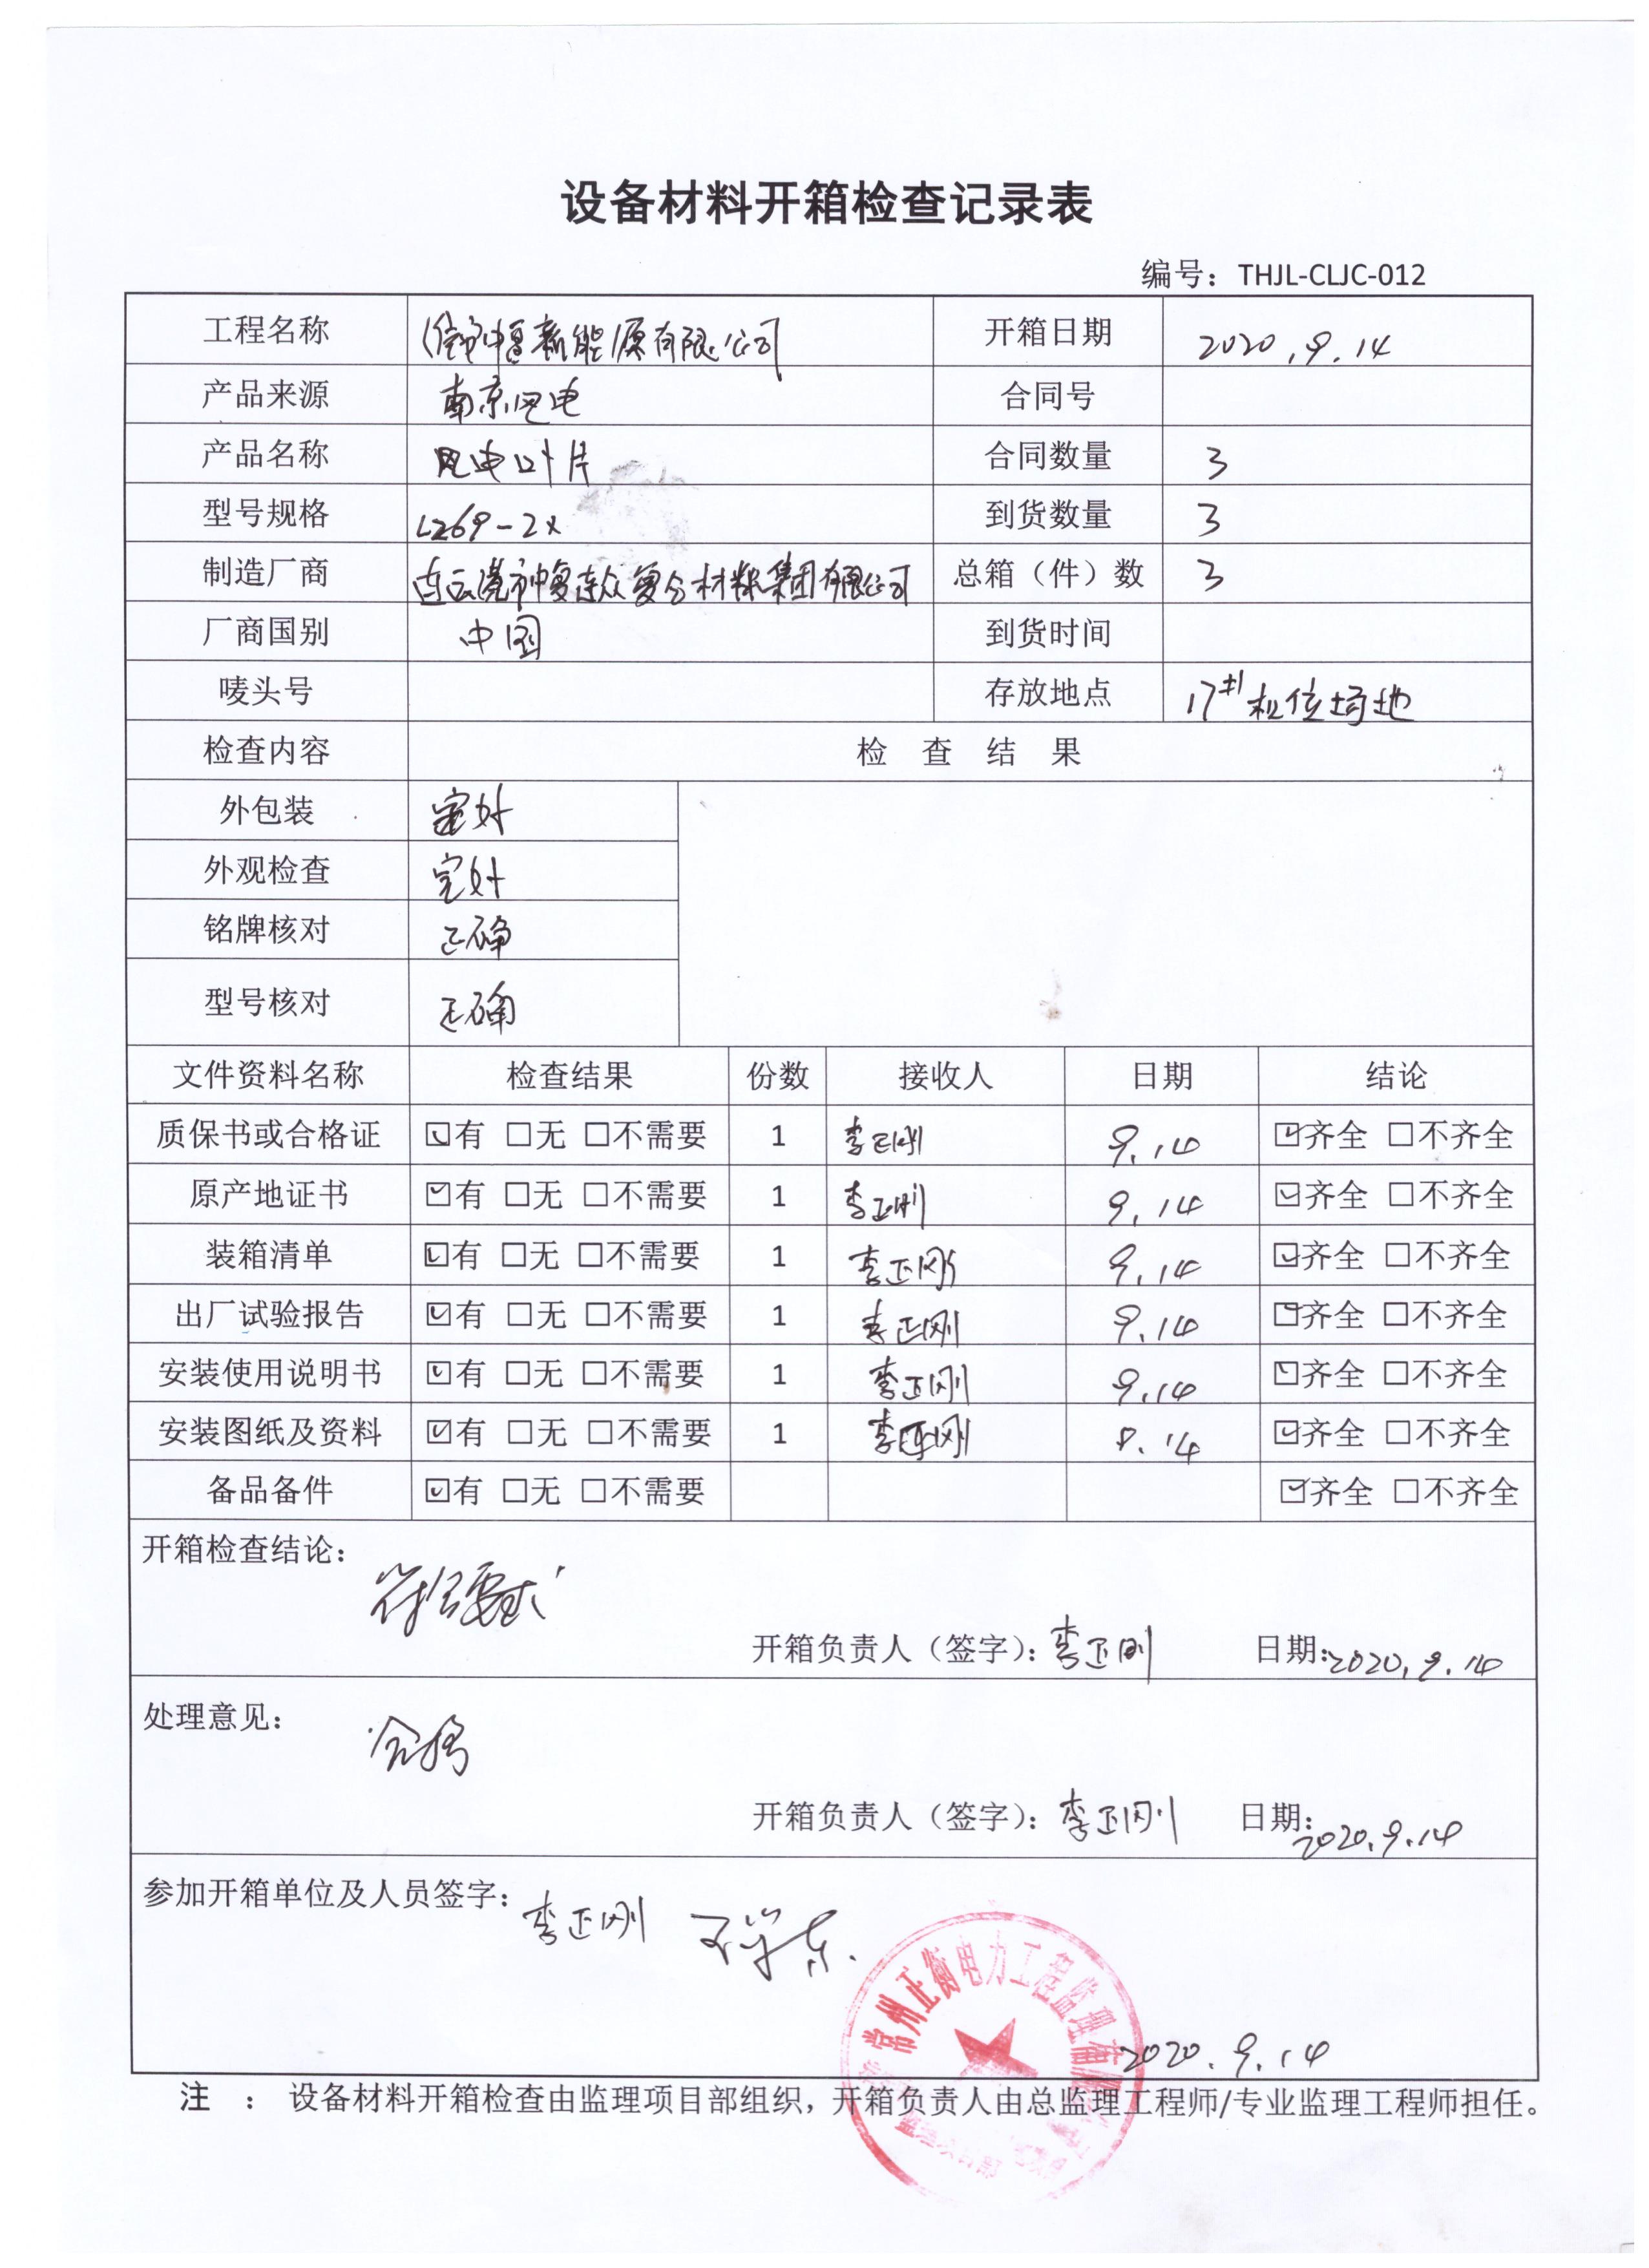 设备材料开箱检查记录表
编号：THJL-CLJC-012
工程名称 新能源有限公司 开箱日期 2020.9.14
产品来源 南京风电 合同号
产品名称 风电叶片 合同数量 3
型号规格 LZ69-2X 到货数量 3
制造厂商 连云港中复连众复合材料集团有限公司 总箱（件）数 3
厂商国别 中国 到货时间
唛头号 存放地点 17#机位场地
检查内容 检 查 结 果
外包装 完好
外观检查 完好
铭牌核对 正确
型号核对 正确
文件资料名称 检查结果 份数 接收人 日期 结论
质保书或合格证 ☑有 □无 □不需要 1 李正刚 9.14 ☑齐全 □不齐全
原产地证书 ☑有 □无 □不需要 1 李正刚 9.14 ☑齐全 □不齐全
装箱清单 ☑有 □无 □不需要 1 李正刚 9.14 ☑齐全 □不齐全
出厂试验报告 ☑有 □无 □不需要 1 李正刚 9.14 ☑齐全 □不齐全
安装使用说明书 ☑有 □无 □不需要 1 李正刚 9.14 ☑齐全 □不齐全
安装图纸及资料 ☑有 □无 □不需要 1 李正刚 9.14 ☑齐全 □不齐全
备品备件 ☑有 □无 □不需要 ☑齐全 □不齐全
开箱检查结论：
符合要求
开箱负责人（签字）：李正刚 日期：2020.9.14
处理意见：
合格
开箱负责人（签字）：李正刚 日期：2020.9.14
参加开箱单位及人员签字：李正刚
常州正衡电力工程监理有限
2020.9.14
注 ： 设备材料开箱检查由监理项目部组织，开箱负责人由总监理工程师/专业监理工程师担任。